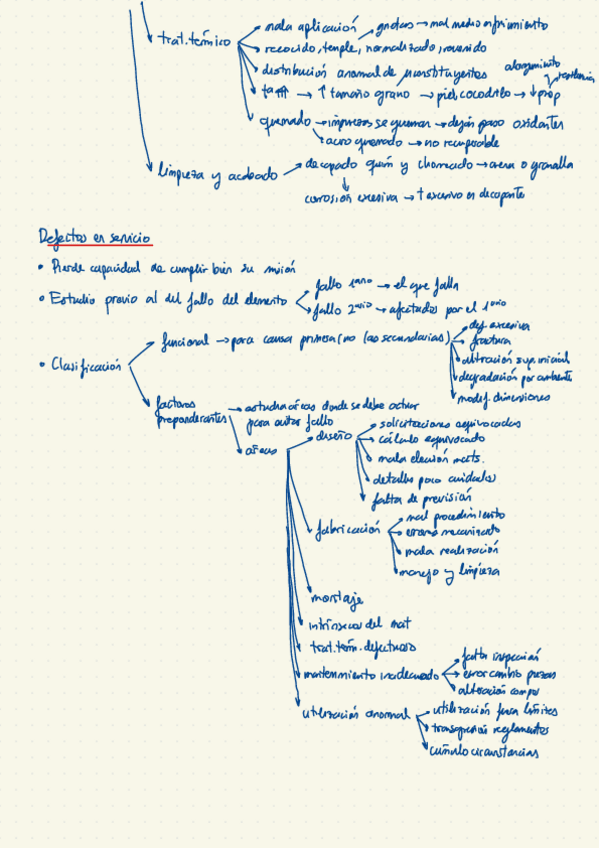 trat. térmico
mala aplicación → grietas → mal medio enfriamiento
recocido, temple, normalizado, revenido
distribución anormal de µconstituyentes
tª ⇈ → ↑ tamaño grano → piel cocodrilo → ↓ prop
alargamiento
resiliencia
quemado → impurezas se queman → dejan paso oxidantes
acero quemado → no recuperable
limpieza y acabado
decapado quím y chorreado → arena o granalla
corrosión excesiva → t excesivo en decapantes
Defectos en servicio
• Pierde capacidad de cumplir bien su misión
• Estudio previo al del fallo del elemento
fallo 1ario → el que falla
fallo 2ario → afectados por el 1ario
• Clasificación
funcional → para causa primera (no las secundarias)
def. excesiva
fractura
alteración superficial
degradación por ambiente
modif. dimensiones
factores preponderantes
→ estudia áreas donde se debe actuar
para evitar fallo
áreas
diseño
solicitaciones equivocadas
cálculo equivocado
mala elección mats.
detalles poco cuidados
falta de previsión
fabricación
mal procedimiento
errores mecanizado
mala realización
manejo y limpieza
montaje
intrínsecos del mat
trat. térm. defectuoso
mantenimiento inadecuado
falta inspección
error cambio piezas
alteración comps
utilización anormal
utilización fuera límites
transgresión reglamentos
cúmulo circunstancias